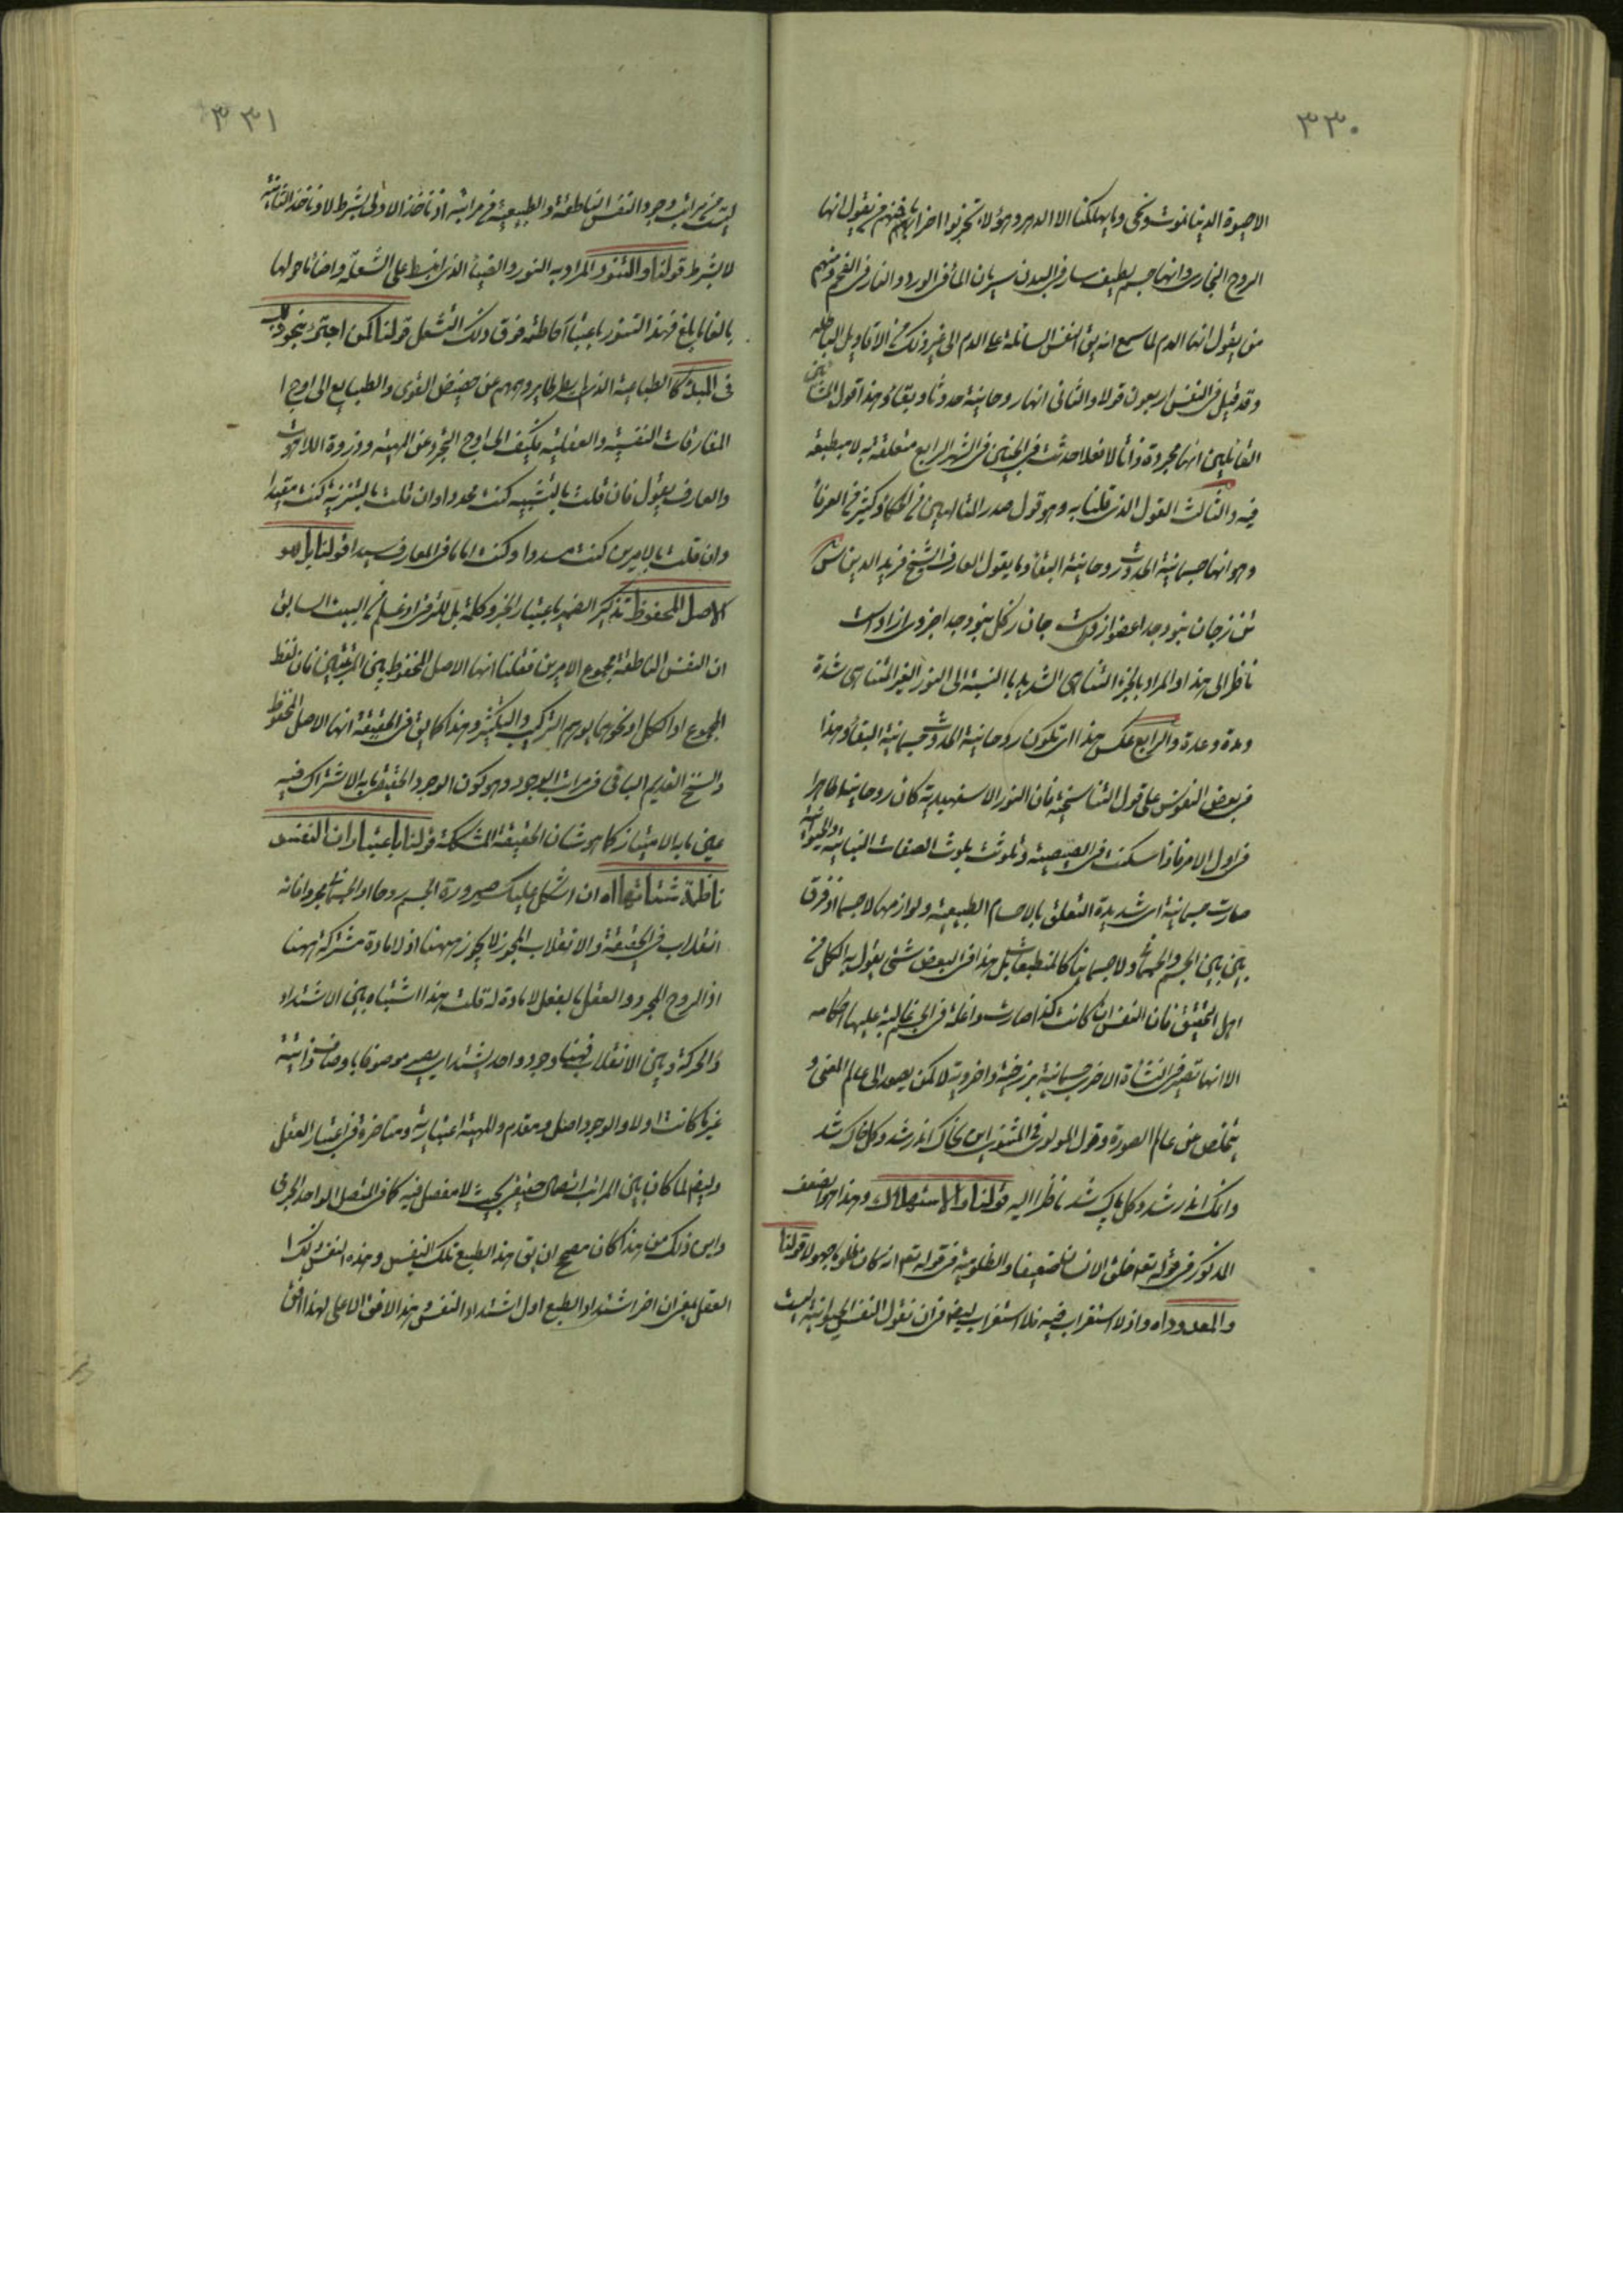 ٣٣٠
الاحيوة الدنيا نموت ونحيى وما يهلكنا الا الدهر وهؤلاء تحزبوا احزابا فمنهم من يقول انها
الروح البخارى وانها جسم لطيف سار فى البدن سريان الماء فى الورد والنار فى الفحم ومنهم
من يقول انها الدم لما سمع انه يق النفس السائلة على الدم الى غير ذلك من الاقاويل الباطله
وقد قيل فى النفس اربعون قولا والثانى انها روحانية حدوثا وبقاء وهذا قول المشائين
القائلين انها مجردة ذاتا لا فعلا حدثت فى الجنين فى الشهر الرابع متعلقة به لا منطبعة
فيه والثالث القول الذى قلنا به وهو قول صدر المتالهين من الحكماء وكثير من العرفاء
وهو انها جسمانية الحدوث روحانية البقاء وما يقول العارف الشيخ فريد الدين
تن ز جان نبود جدا عضوى ازوست جان ز كل نبود جدا جزوى ازوست
ناظر الى هذا والمراد بالجزء المتناهى الشديد بالنسبة الى النور الغير المتناهى شدة
ومدة وعدة والرابع عكس هذا اى تكون روحانية الحدوث جسمانية البقاء وهذا
فى بعض النفوس على قول التناسخية فان النور الاسفهبدية كان روحانيا طاهرا
فى اول الامر فاذا سكنت فى الصيصية وتلوثت بلوث الصفات النباتية والحيوانية
صارت جسمانية اى شديدة التعلق بالاجسام الطبيعية ولوازمها لا جسما اذ فرق
بين بين الجسم والجسمانى ولا جسمانيا كالمنطبعات بل هذا فى البعض شئ يقول به الكل من
اهل التحقيق فان النفس ان كانت كذا صارت واغلة فى الجسم غالبة عليها احكامه
الا انها تصير فى النشاة الاخرى جسمانية برزخية واخروية لا كمن يصعد الى عالم المعنى و
يتخلص عن عالم الصورة وقول المولوى فى المثنوى اين بخاك اندر شد وكل خاك شد
وانك اندر شد وكل پاك شد ناظر اليه قولنا والاستهلاك وهذا هو الضعف
المذكور فى قوله تعم خلق الانسان ضعيفا والظلومية فى قوله تعم انه كان ظلوما جهولا قولنا
والمعدود اه واذ لا استغراب فيه فلا استغراب ايضا فى ان نقول النفس الحيوانية ليست
٣٣١
ليست من مراتب وجود النفس الناطقة والطبيعية من مراتبه اذ تاخذ الاولى بشرط لا وتاخذ الثانية
لا بشرط قولنا والتنور المراد به النور والضياء الذى انبسط على الشعلة واضاء ما حولها
بالغا ما بلغ فهذا التنور باعتبار احاطته فوق ذلك التشعل قولنا لكن اجتزئ بنحو
فى المبدء كالطباعية الذى لم يطر طاير وهمهم عن حضيض القوى والطبايع الى اوج ا
المفارقات النفسية والعقلية فكيف الى اوج التجرد عن المهية وذروة اللاهوت
والعارف يقول فان قلت بالتشبيه كنت محددا وان قلت بالتنزيه كنت مقيدا
وان قلت بالامرين كنت مسددا وكنت اماما فى المعارف سيدا قولنا بل هو
كالاصل المحفوظ تذكير الضمير باعتبار الخبر وكلمة بل للترقى اذ علم من البيت السابق
ان النفس الناطقة مجموع الامرين فقلنا انها الاصل المحفوظ بين المرتبتين فان لفظ
المجموع او الكل او نحوهما يوهم التركيب والتكثير وهذا كما يق فى الحقيقة انها الاصل المحفوظ
والسنخ القديم الباقى فى مراتب الوجود وهو كون الوجود الحقيقى ما به الاشتراك فيه
عين ما به الامتياز كما هو شان الحقيقة المشككة قولنا باعتبار ان النفس
ناظمة شتاتها اه ان اشكل عليك صيرورة الجسم روحا والجسمانى مجردا فانه
انقلاب فى الحقيقة والانقلاب المجوز لا يجوز ههنا اذ لا مادة مشتركة ههنا
اذ الروح المجرد والعقل بالفعل لا مادة له قلت هذا اشتباه بين الاشتداد
والحركة وبين الانقلاب فهنا وجود واحد يشتد اى يصير موصوفا باوصاف ذاتية
غير ما كانت اولا والوجود اصل ومقدم والمهية اعتبارية ومتاخرة فى اعتبار العقل
وايضا لما كان بين المراتب اتصال حقيقى بحيث لا مفصل فيه كما فى المتصل الواحد الجزئى
واين ذلك من هذا كان مصحح ان يق هذا الطبع تلك النفس وهذه النفس ذلك ا
العقل بمعنى ان اخر اشتداد الطبع اول اشتداد النفس وهذا الافق الاعلى لهذا افق